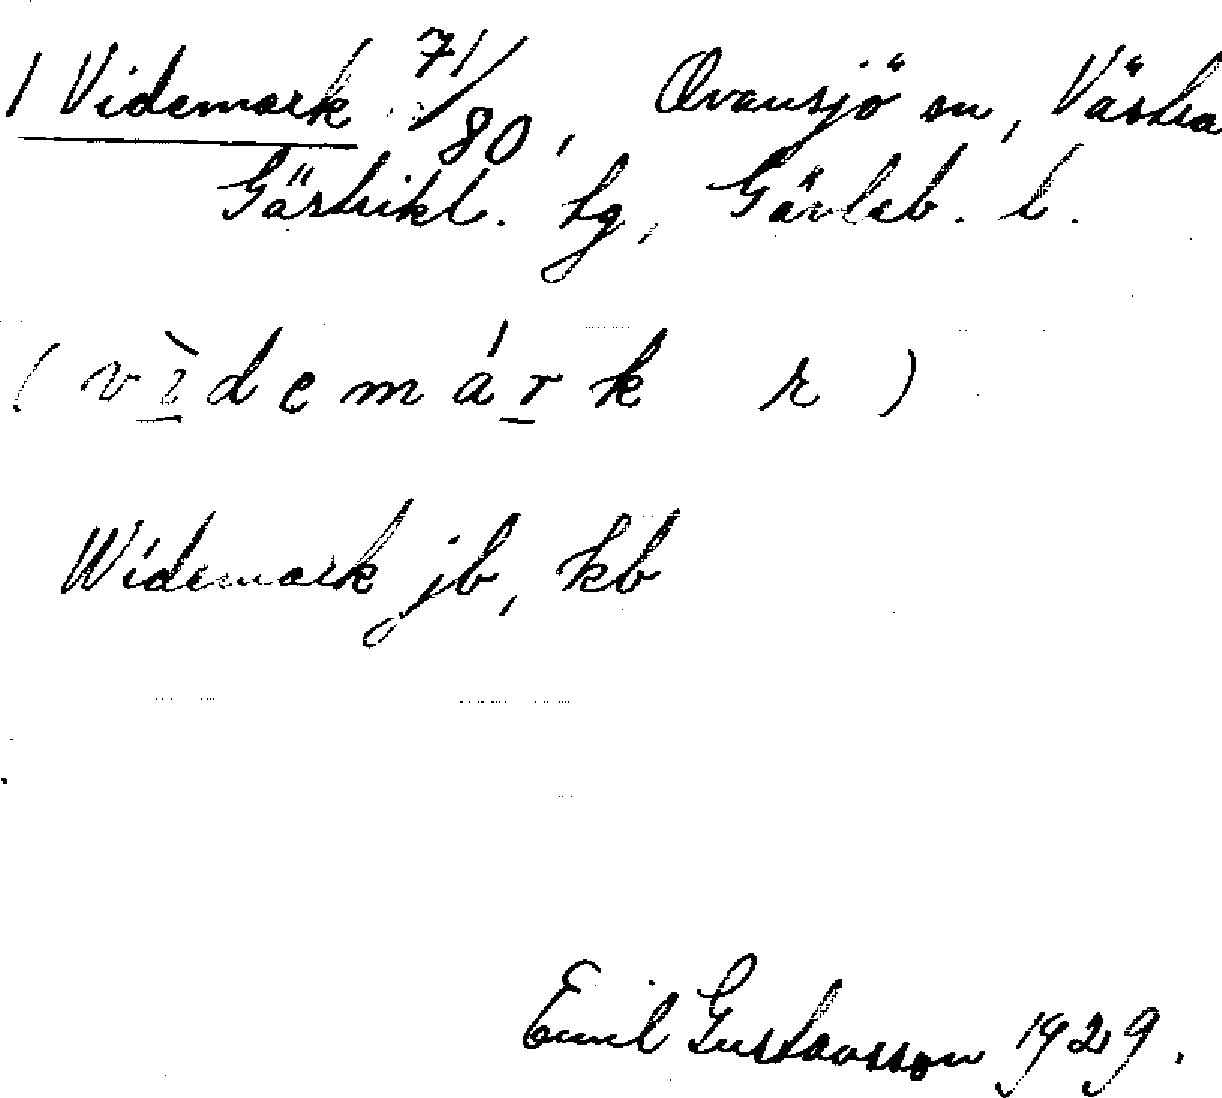 1 Videmark 71/80, Ovansjö sn, Västra
Gästrikl. tg, Gävleb. l.
(vìdemárk r)
Widemark jb, kb
Emil Gustavsson 1929.